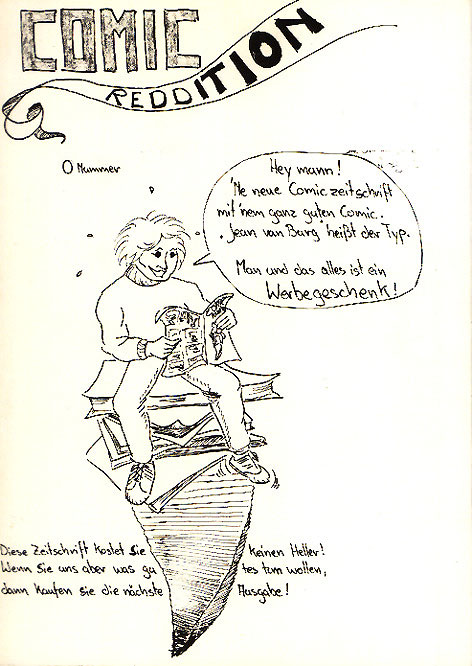 COMIC
REDDITION
0 Nummer
Hey mann!
'Ne neue Comiczeitschrift
mit 'nem ganz guten Comic.
Jean van Burg heißt der Typ.
Man und das alles ist ein
Werbegeschenk!
Diese Zeitschrift kostet Sie keinen Heller!
Wenn Sie uns aber was gu tes tum wollen,
dann kaufen sie die nächste Ausgabe!